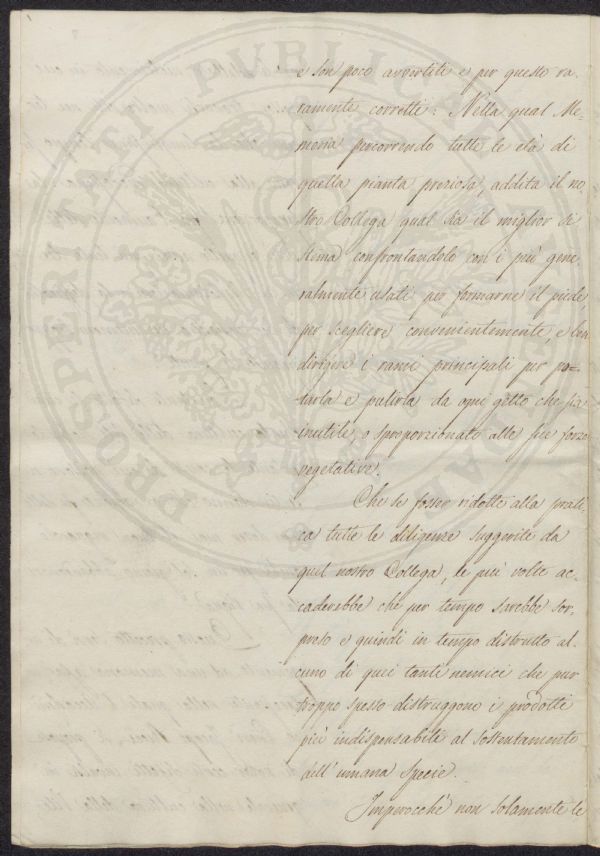 e son poco avvertiti e per questo ra-
ramente corretti: Nella qual Me-
moria percorrendo tutte le età di
quella pianta preziosa, addita il no-
stro Collega qual sia il miglior si
stema confrontandolo con i più gene
ralmente usati per formarne il piede,
per scegliere convenientemente, e ben
dirigere i rami principali per po-
tarla e pulirla da ogni getto che sia
inutile, o sproporzionato alle sue forze
vegetative.
Che se fosser ridotte alla prati
ca tutte le diligenze suggerite da
quel nostro Collega, le più volte ac-
caderebbe che per tempo sarebbe sor-
preso e quindi in tempo distrutto al-
cuno di quei tanti nemici che pur
troppo spesso distruggono i prodotti
più indispensabili al sostentamento
dell'umana specie.
Imperocchè non solamente le
PROSPERITATI PVBLICAE